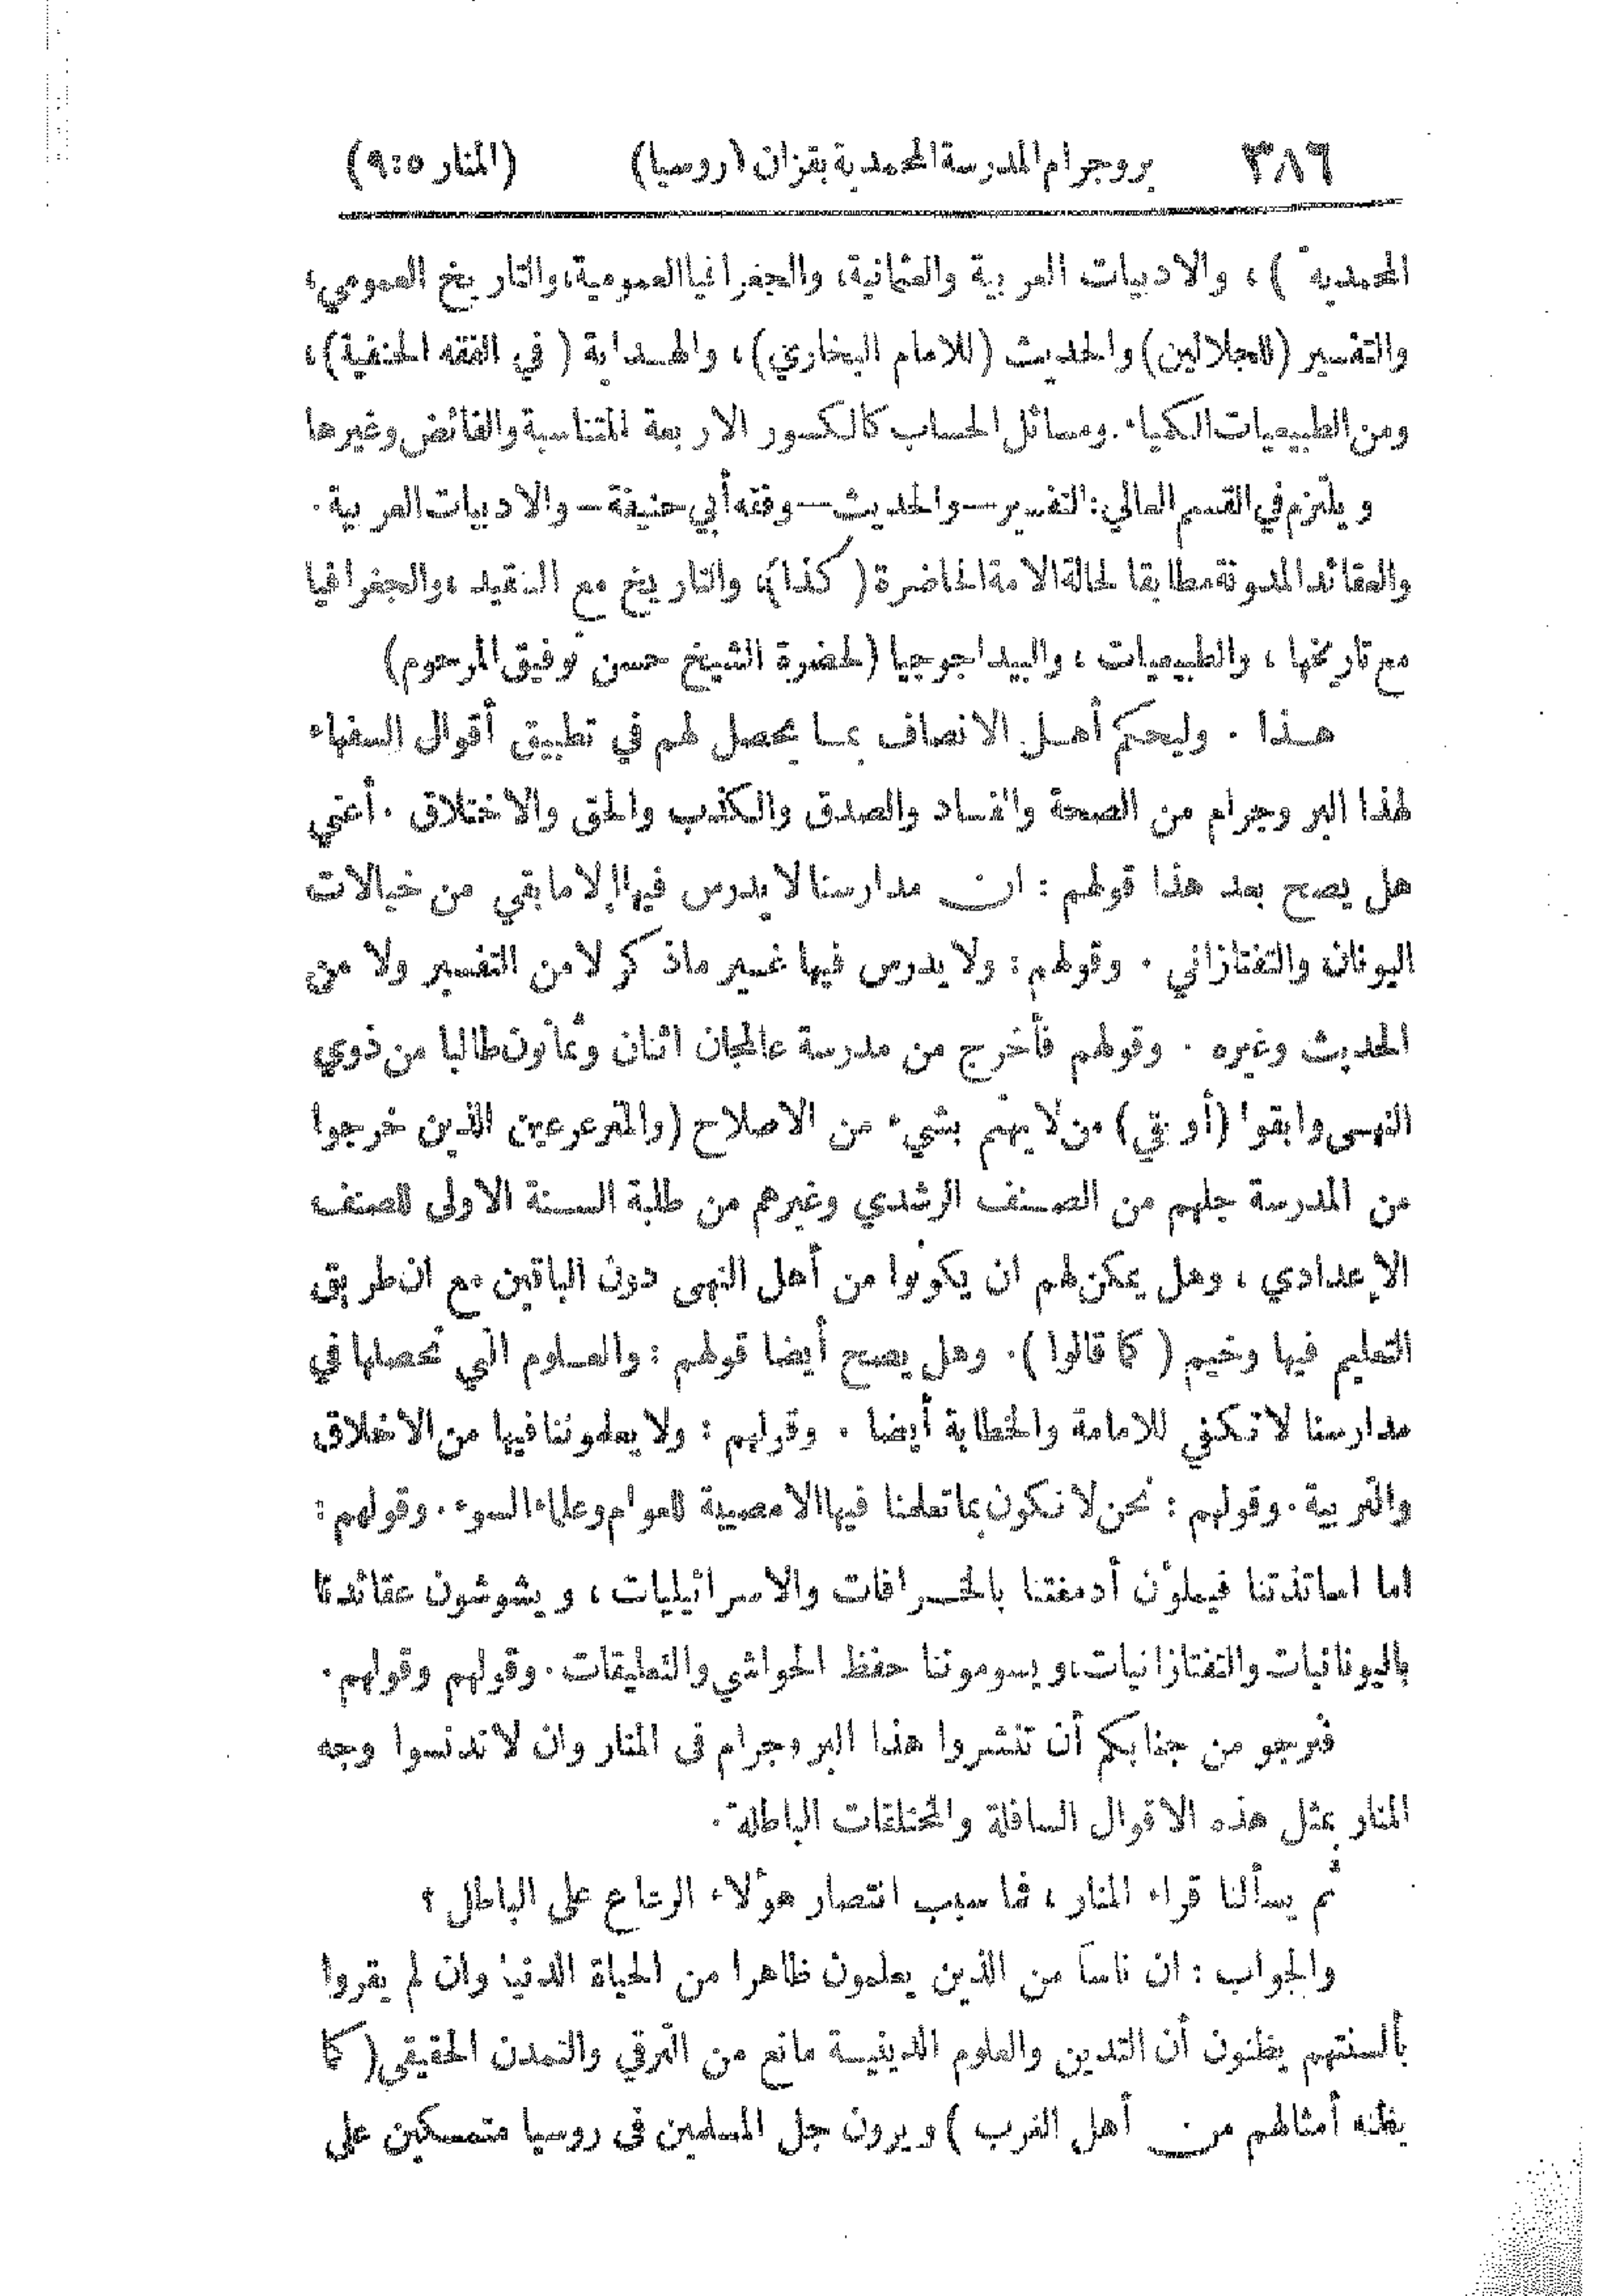 ٣٨٦ بروجرام المدرسة المحمدية بقزان (روسيا) (المنار ٥:٩)
المحمدية )، والادبيات العربية والعثمانية، والجغرافيا العمومية، والتاريخ العمومي،
والتفسير (للجلالين) والحديث (للامام البخاري)، والهداية ( في الفقه الحنفية)،
ومن الطبيعيات الكيمياء. ومسائل الحساب كالكسور الاربعة المتناسبة والفائض وغيرها
ويلتزم في القسم العالي: التفسير — والحديث — وفقه أبي حنيفة — والادبيات العربية.
والعقائد المدونة مطابقا لحالة الامة الحاضرة ( كذا )، والتاريخ مع التنقيد، والجغرافيا
مع تاريخها ، والطبيعيات ، والبيداجوجيا (لحضرة الشيخ حسن توفيق المرحوم)
هذا . وليحكم أهل الانصاف بما يحصل لهم في تطبيق أقوال السفهاء
لهذا البروجرام من الصحة والفساد والصدق والكذب والحق والاختلاق . أعني
هل يصح بعد هذا قولهم : ان مدارسنا لا يدرس فيها إلا ما بقي من خيالات
اليونان والتفتازاني . وقولهم : ولا يدرس فيها غير ما ذكر لا من التفسير ولا من
الحديث وغيره . وقولهم فأخرج من مدرسة عالمجان اثنان وثمانون طالبا من ذوي
النهى وابقوا (أو بقي) من لا يهتم بشيء من الاصلاح (والمترعرعين الذين خرجوا
من المدرسة جلهم من الصنف الرشدي وغيرهم من طلبة السنة الاولى للصنف
الإعدادي ، وهل يمكن لهم ان يكونوا من أهل النهى دون الباقين مع ان طريق
التعليم فيها وخيم ( كما قالوا ). وهل يصح أيضا قولهم : والعلوم التي نحصلها في
مدارسنا لا تكفي للامامة والخطابة أيضا . وقولهم : ولا يعلموننا فيها من الاخلاق
والتربية . وقولهم : نحن لا نكون بما تعلمنا فيها الا مصيبة للعوام وعلماء السوء . وقولهم :
اما اساتذتنا فيملؤن أدمغتنا بالخرافات والاسرائيليات ، ويشوشون عقائدنا
باليونانيات والتفتازانيات، ويسوموننا حفظ الحواشي والتعليقات . وقولهم وقولهم .
فنرجو من جنابكم أن تنشروا هذا البروجرام في المنار وان لا تدنسوا وجه
المنار بمثل هذه الاقوال السافلة والمختلقات الباطلة .
ثم يسألنا قراء المنار ، فما سبب انتصار هؤلاء الرعاع على الباطل ؟
والجواب : ان ناسا من الذين يعلمون ظاهرا من الحياة الدنيا وان لم يقروا
بألسنتهم يظنون أن التدين والعلوم الدينية مانع من الترقي والتمدن الحقيقي ( كما
يظنه أمثالهم من أهل الغرب ) ويرون جل المسلمين في روسيا متمسكين على